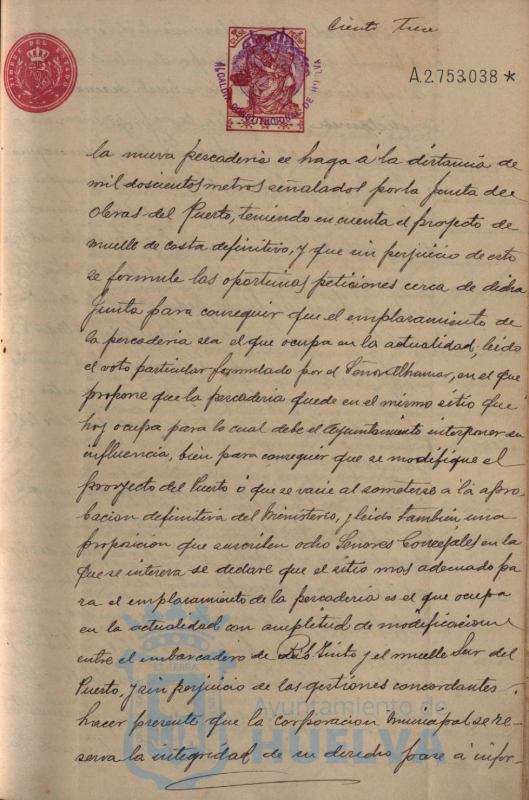 Ciento Trece
A.2.753.038 *
TIMBRE DEL ESTADO
ALCALDIA CONSTITUCIONAL DE HUELVA
la nueva pescaderia se haga á la distancia de
mil doscientos metros señalados por la Junta de
Obras del Puerto, teniendo en cuenta el proyecto de
muelle de costa definitivo, y que sin perjuicio de esto
se formule las oportunas peticiones cerca de dicha
Junta para conseguir que el emplazamiento de
la pescaderia sea el que ocupa en la actualidad, leido
el voto particular formulado por el Señor Alhamar, en el que
propone que la pescaderia quede en el mismo sitio que
hoy ocupa para lo cual debe el Ayuntamiento interponer su
influencia, bien para conseguir que se modifique el
proyecto del Puerto ó que se varie al someterse á la apro-
bacion definitiva del Ministerio, y leido tambien una
proposicion que suscriben ocho Señores Concejales en la
que se interesa se declare que el sitio mas adecuado pa
ra el emplazamiento de la pescaderia es el que ocupa
en la actualidad con amplitud de modificacion
entre el embarcadero de Rio-Tinto y el muelle Sur del
Puerto, y sin perjuicio de las gestiones concordantes
hacer presente que la corporacion municipal se re-
serva la integridad de su derecho para á infor-
Ayuntamiento de
HUELVA